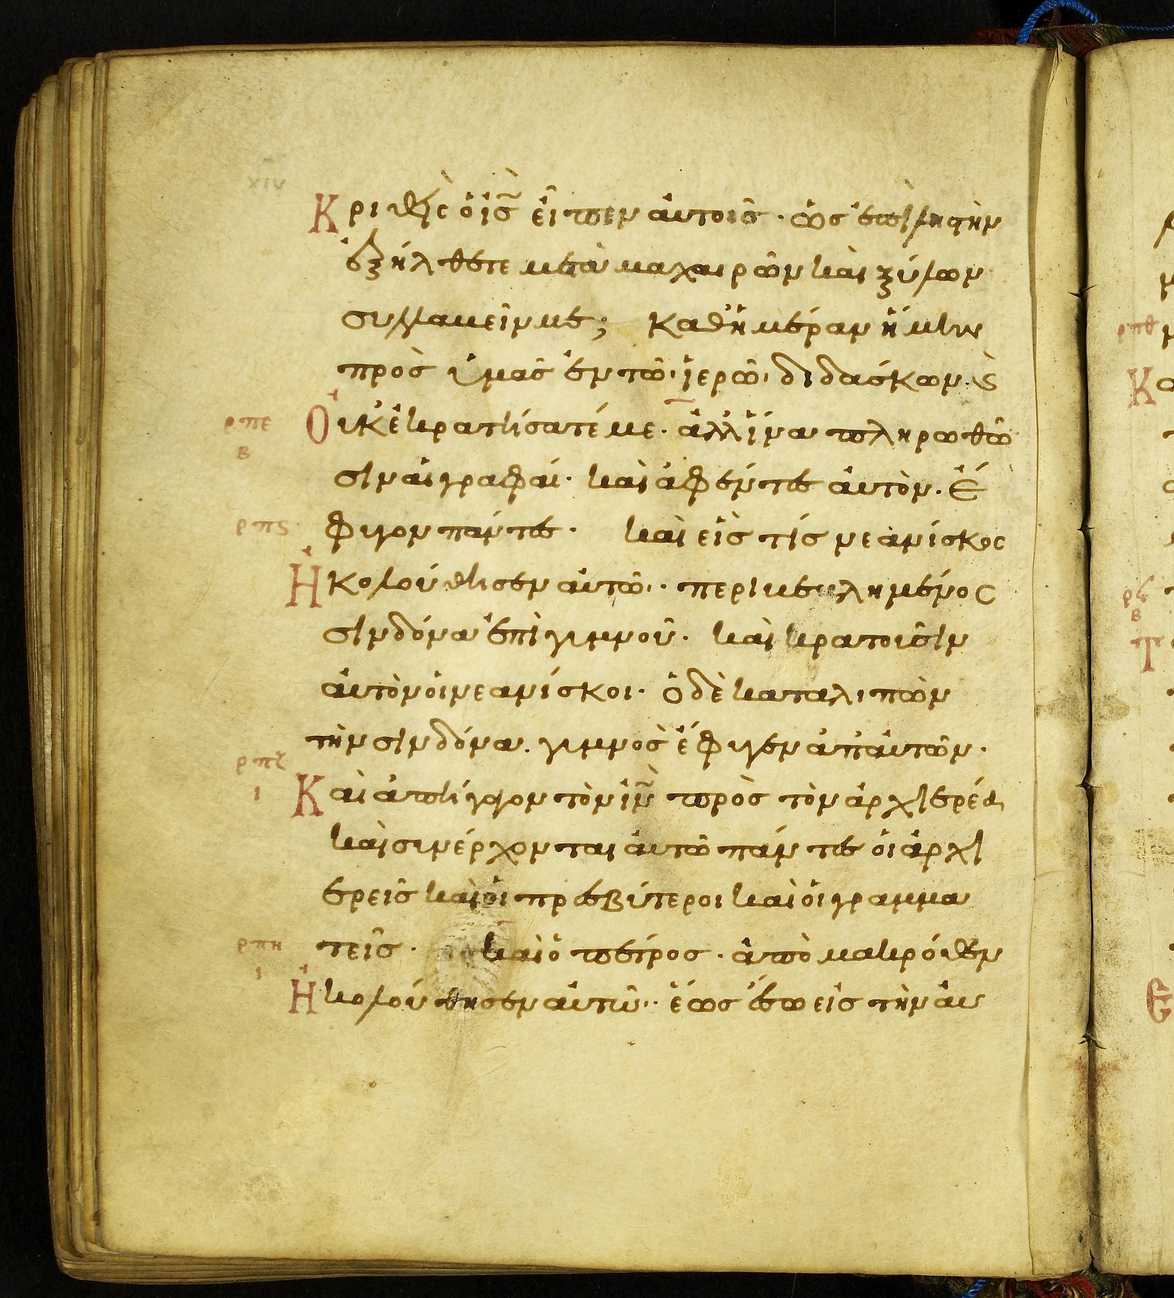 xiv
Κριθεὶς ὁ ις̅ εἶπεν αὐτοῖς · ὡς ἐπὶ ληστὴν
ἐξήλθετε μετὰ μαχαιρῶν καὶ ξύλων
συλλαβεῖν με; Καθ ἡμέραν ἤμην
πρὸς ὑμᾶς ἐν τῶ ἱερῶ διδάσκων · ϗ
ρπε Οὐκ ἐκρατήσατέ με · ἀλλ ἵνα πληρωθῶ
β
σιν αἱ γραφαί · καὶ ἀφέντες αὐτὸν · ἔ
ρπς φυγον πάντες · καὶ εἷς τίς νεανίσκος
Ηκολούθησεν αὐτῶ · περιβεβλημένος
σινδόνα ἐπὶ γυμνοῦ · καὶ κρατοῦσιν
αὐτὸν οἱ νεανίσκοι · ὁ δὲ καταλιπὼν
τὴν σινδόνα · γυμνὸς ἔφυγεν ἀπ αὐτῶν ·
ρπζ
ι Καὶ ἀπήγαγον τὸν ιν̅ πρὸς τὸν ἀρχιερέα
καὶ συνέρχονται αὐτῶ πάντες οἱ ἀρχι
ερεῖς καὶ οἱ πρεσβύτεροι καὶ οἱ γραμμα
ρπη τεῖς · καὶ ὁ πέτρος · ἀπὸ μακρόθεν
ι
Ηκολούθησεν αὐτῶ · ἕως ἔσω εἰς τὴν αυ